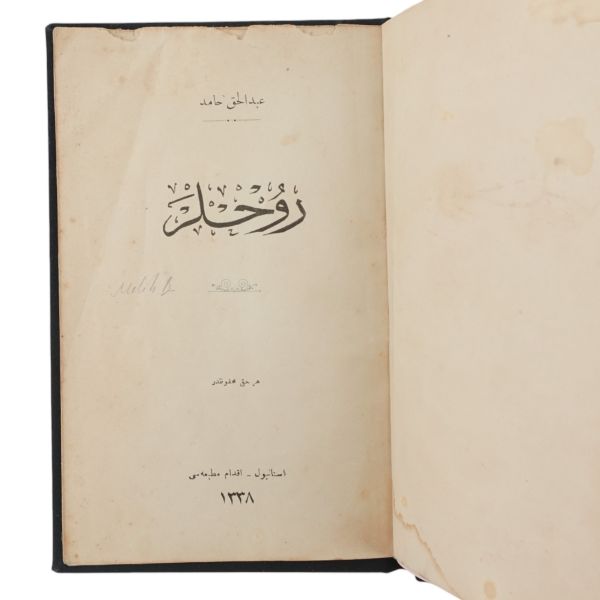 عبدالحق حامد
روحلر
هر حق محفوظدر
استانبول - اقدام مطبعه‌سی
١٣٣٨